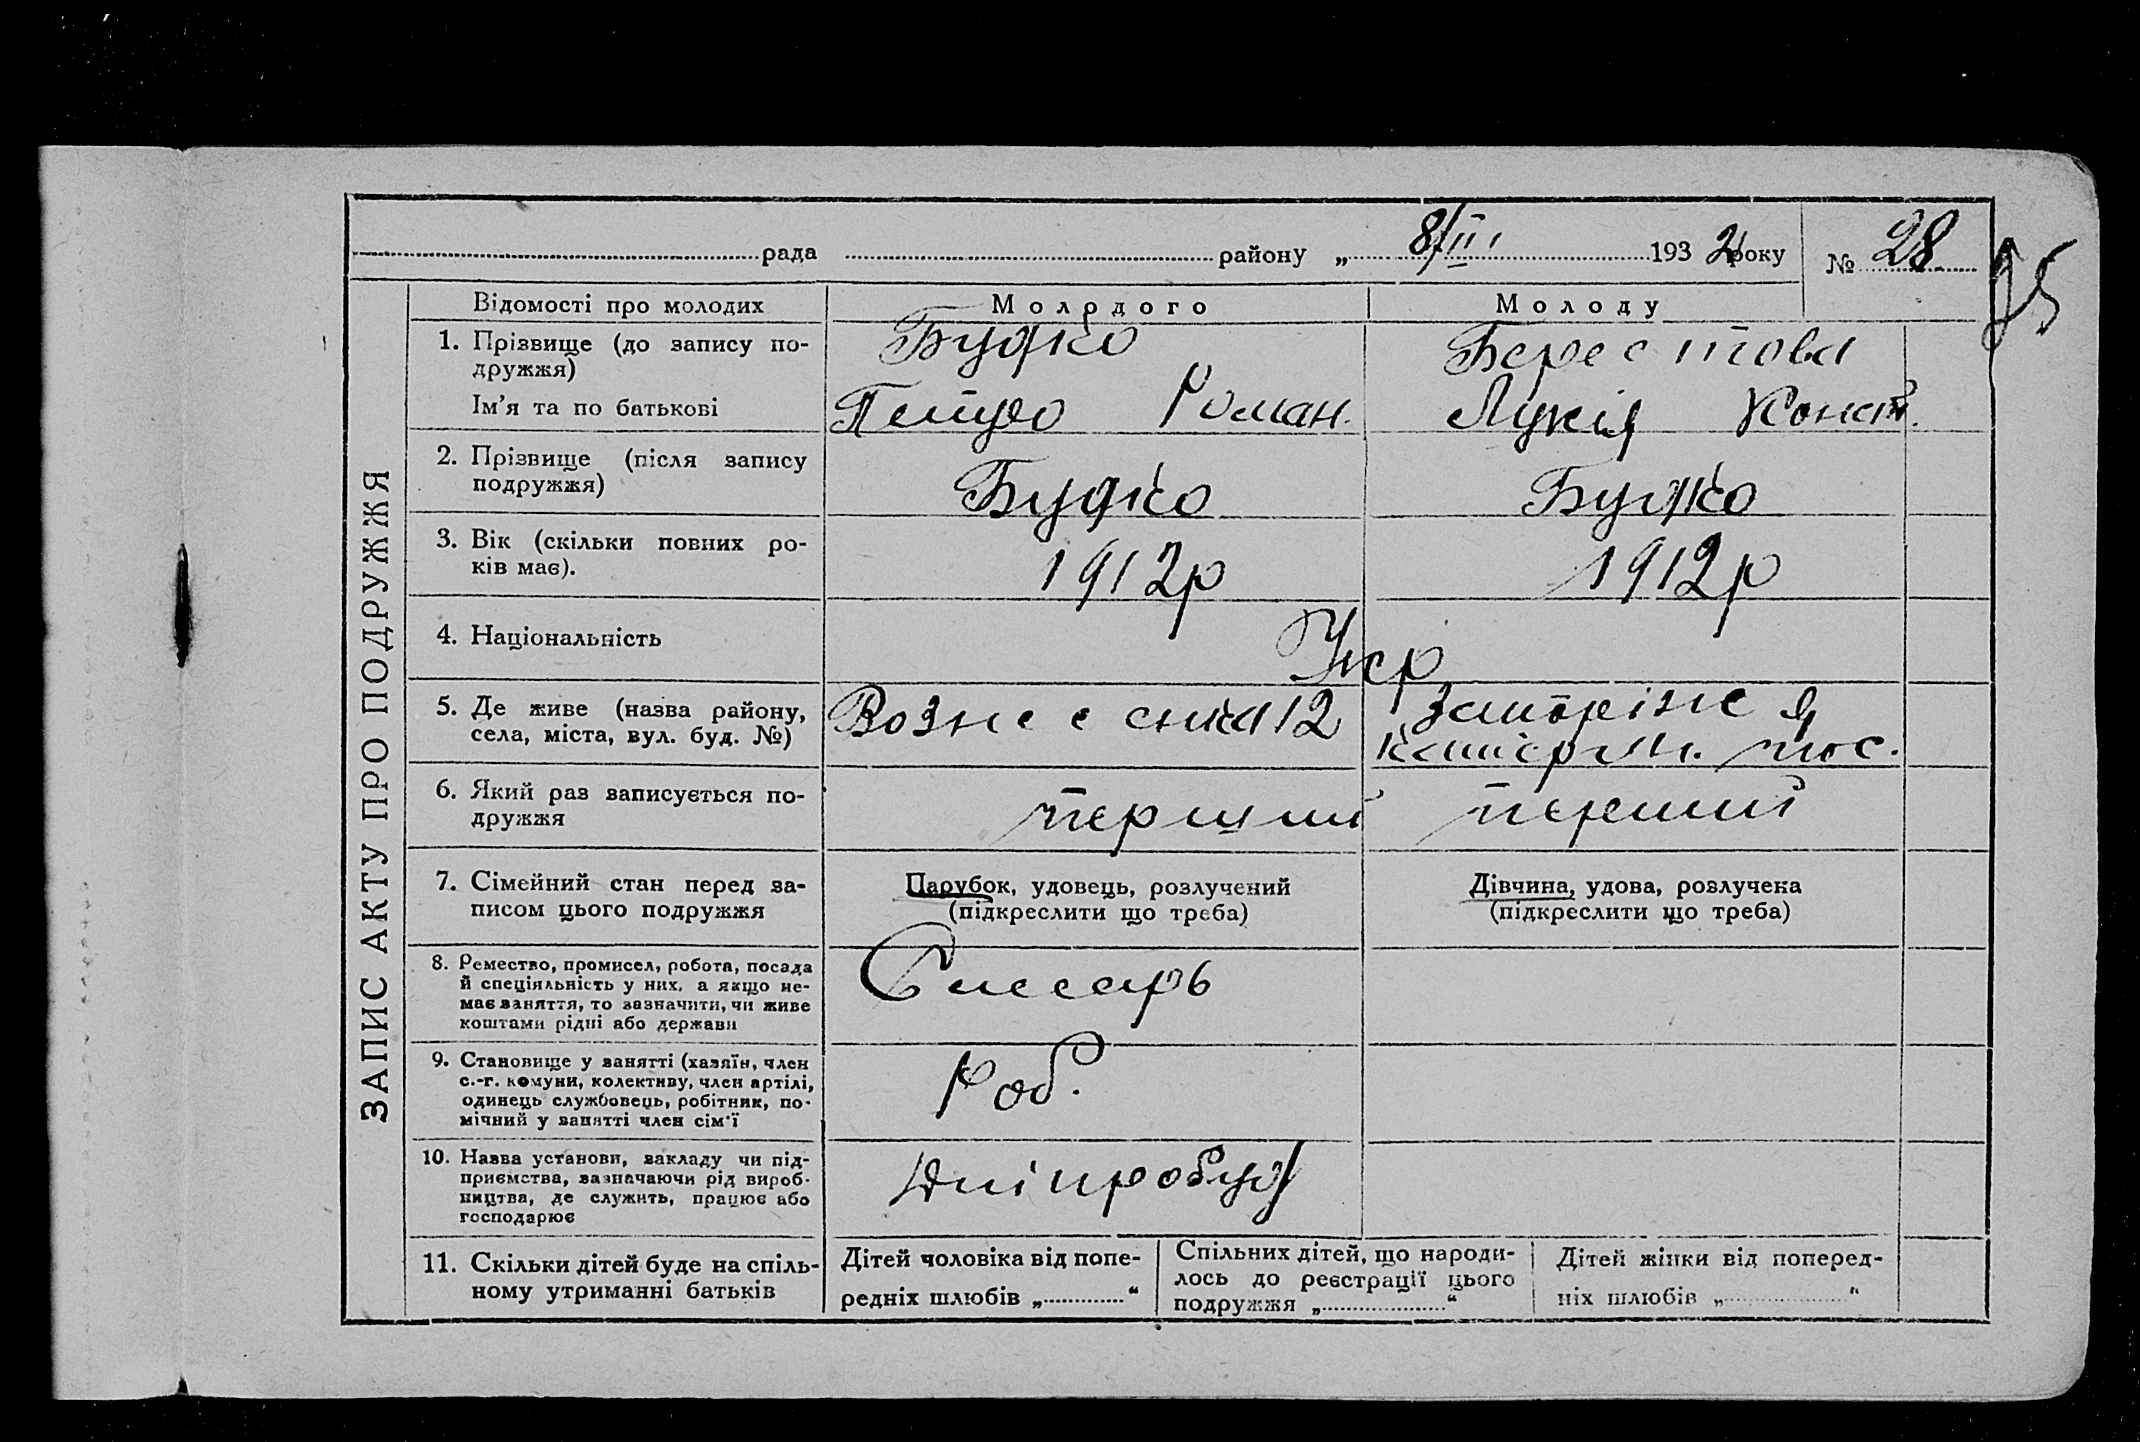 рада району „ 8/II 1932 року № 28
95
ЗАПИС АКТУ ПРО ПОДРУЖЖЯ
Відомості про молодих Молодого Молоду
1. Прізвище (до запису по-
дружжя)
Будко Берестова
Ім'я та по батькові Петро Роман. Лукія Конст.
2. Прізвище (після запису
подружжя)
Будко Будко
3. Вік (скільки повних ро-
ків має).
1912р 1912р
4. Національність Укр
5. Де живе (назва району,
села, міста, вул. буд. №)
Вознесенка 12 Запоріже
пос.
6. Який раз записується по-
дружжя
перший перший
7. Сімейний стан перед за-
писом цього подружжя
Парубок, удовець, розлучений
(підкреслити що треба)
Дівчина, удова, розлучена
(підкреслити що треба)
8. Ремество, промисел, робота, посада
й спеціяльність у них, а якщо не-
має заняття, то зазначити, чи живе
коштами рідні або держави
Слесарь
9. Становище у занятті (хазяїн, член
с.-г. комуни, колективу, член артілі,
одинець службовець, робітник, по-
мічний у занятті член сім'ї
Роб.
10. Назва установи, закладу чи під-
приємства, зазначаючи рід вироб-
ництва, де служить, працює або
господарює
Дніпробуд
11. Скільки дітей буде на спіль-
ному утриманні батьків
Дітей чоловіка від попе-
редніх шлюбів „ “
Спільних дітей, що народи-
лось до реєстрації цього
подружжя „ “
Дітей жінки від поперед-
ніх шлюбів „ “